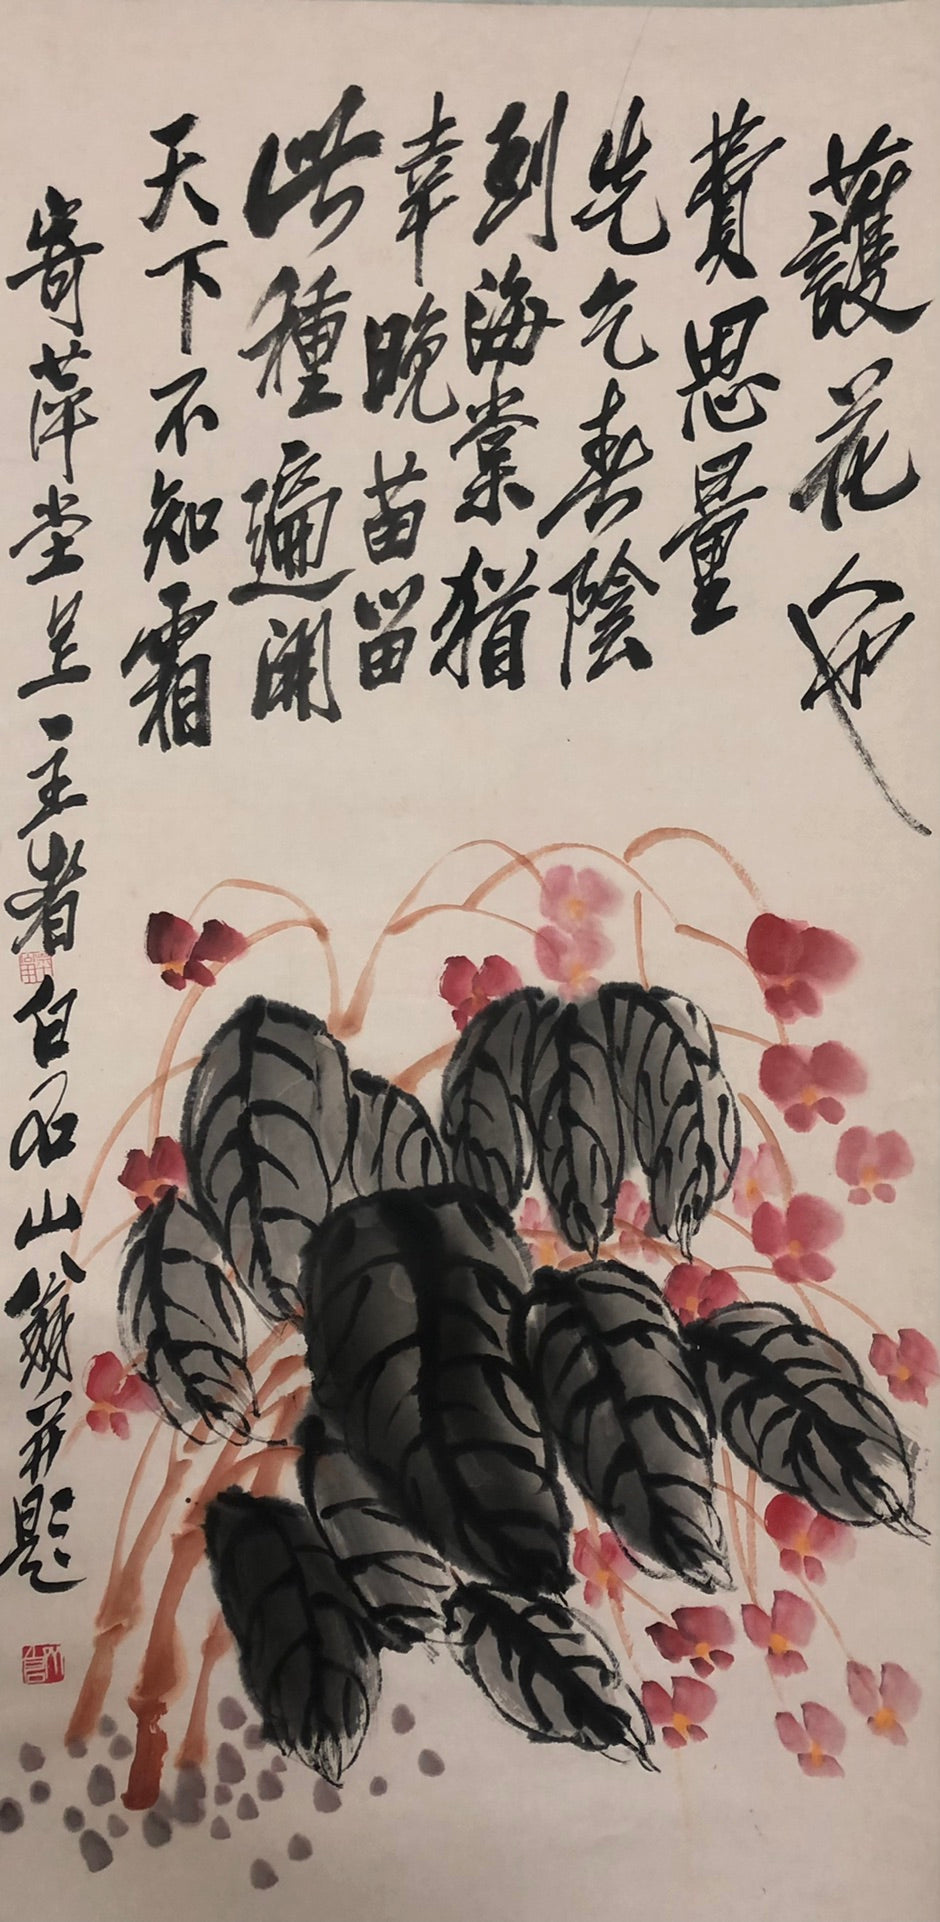 護花何
費思量
先乞春陰
到海棠猶
幸晚苗留
此種遍開
天下不知霜
寄萍堂呈一主者白石山翁并題